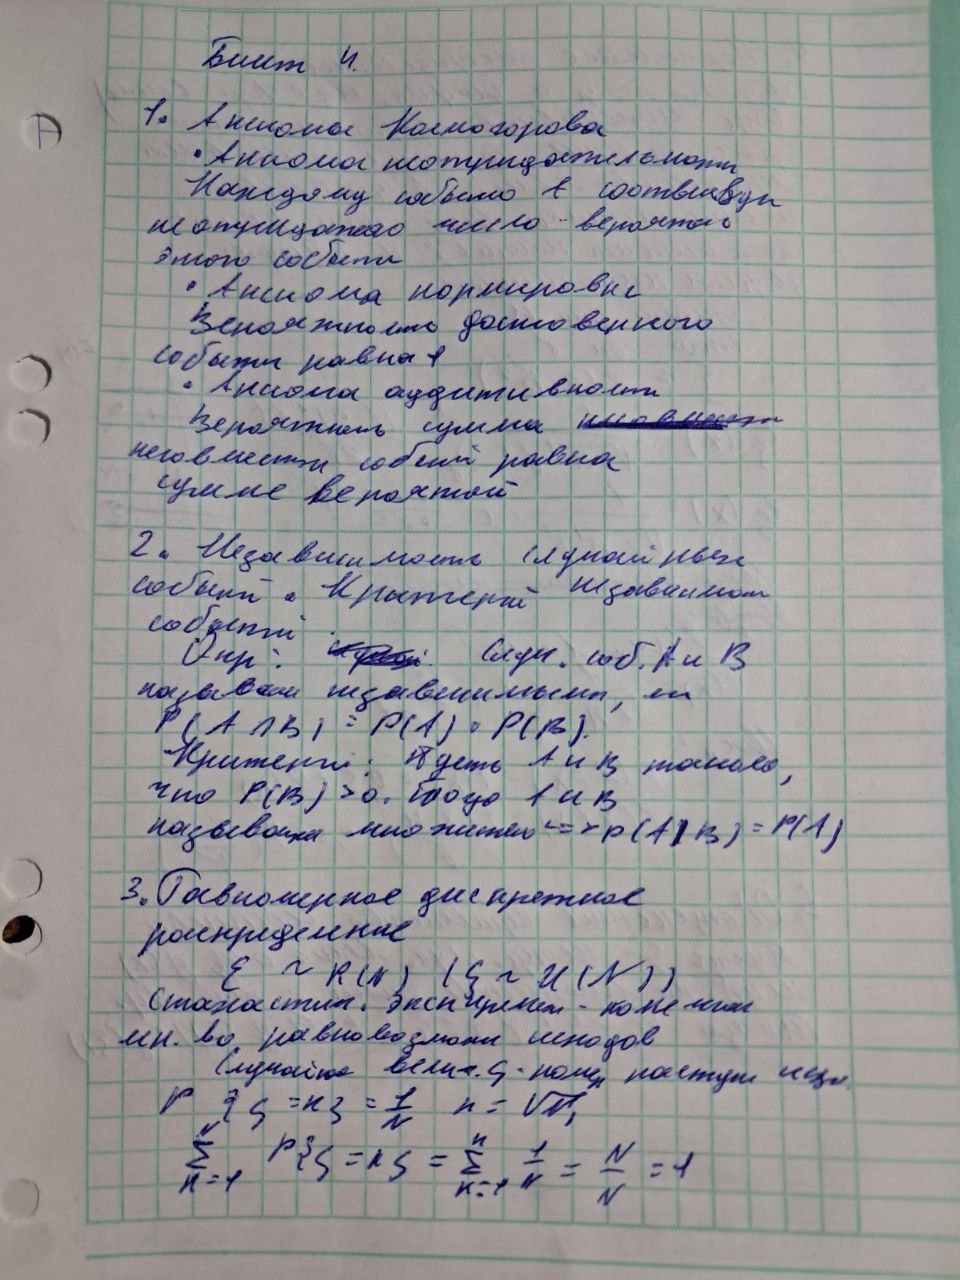 Билет 4.
1. Аксиома Колмогорова
• Аксиома неотрицательности
Каждому событию A соответствует
неотрицательное число - вероятность
этого события
• Аксиома нормировки
Вероятность достоверного
события равна 1
• Аксиома аддитивности
Вероятность сумма
несовместн событий равна
сумме вероятностей
2. Независимость случайных
событий. Критерий независимост
событий.
Опр: Случ. соб. A и B
называют независимыми, если
P(A∩B) = P(A) • P(B).
Критерий: Пусть A и B таковы,
что P(B) > 0. Тогда A и B
называются <=> P(A|B) = P(A)
3. Равномерное дискретное
распределение
ξ ~ R(N) (ξ ~ U(N))
Стохастич. эксперимент - конечное
мн. во равновозможн исходов
Случайная велич. ξ - номер наступ исхо.
P{ξ=k} = 1/N k = 1,N,
∑ k=1 N P{ξ=k} = ∑ k=1 n 1/N = N/N = 1